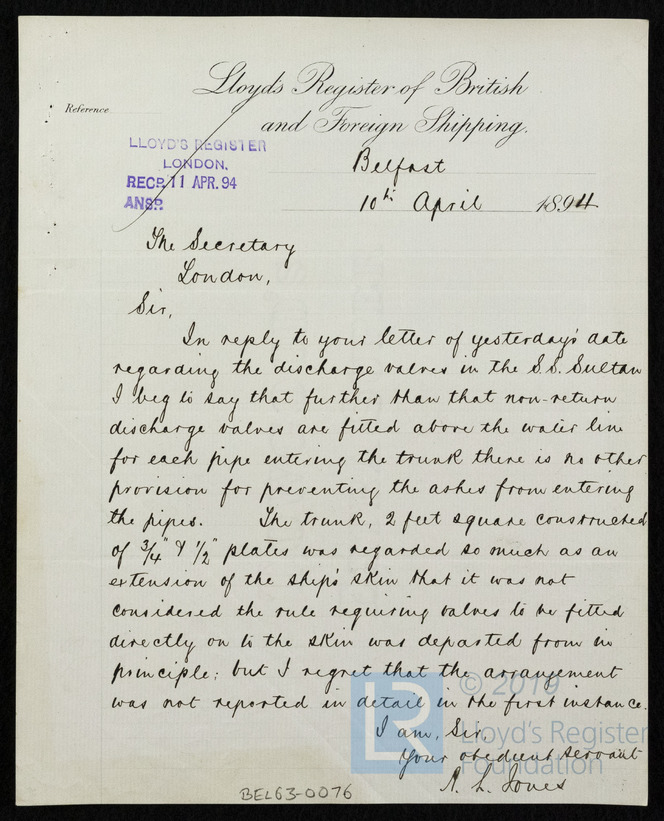 Lloyd's Register of British
and Foreign Shipping.
Reference
LLOYD'S REGISTER
LONDON,
RECD. 11 APR. 94
ANSD.
Belfast
10th April 1894
The Secretary
London,
Sir,
In reply to your letter of yesterday's date
regarding the discharge valves in the S.S. Sultan
I beg to say that further than that non-return
discharge valves are fitted above the water line
for each pipe entering the trunk there is no other
provision for preventing the ashes from entering
the pipes. The trunk, 2 feet square constructed
of 3/4" & 1/2" plates was regarded so much as an
extension of the ship's skin that it was not
considered the rule requiring valves to be fitted
directly on to the skin was departed from in
principle; but I regret that the arrangement
was not reported in detail in the first instance.
I am, Sir,
Your obedient servant
R. L. Jones
BEL63-0076
LR
© 2019
Lloyd's Register
Foundation